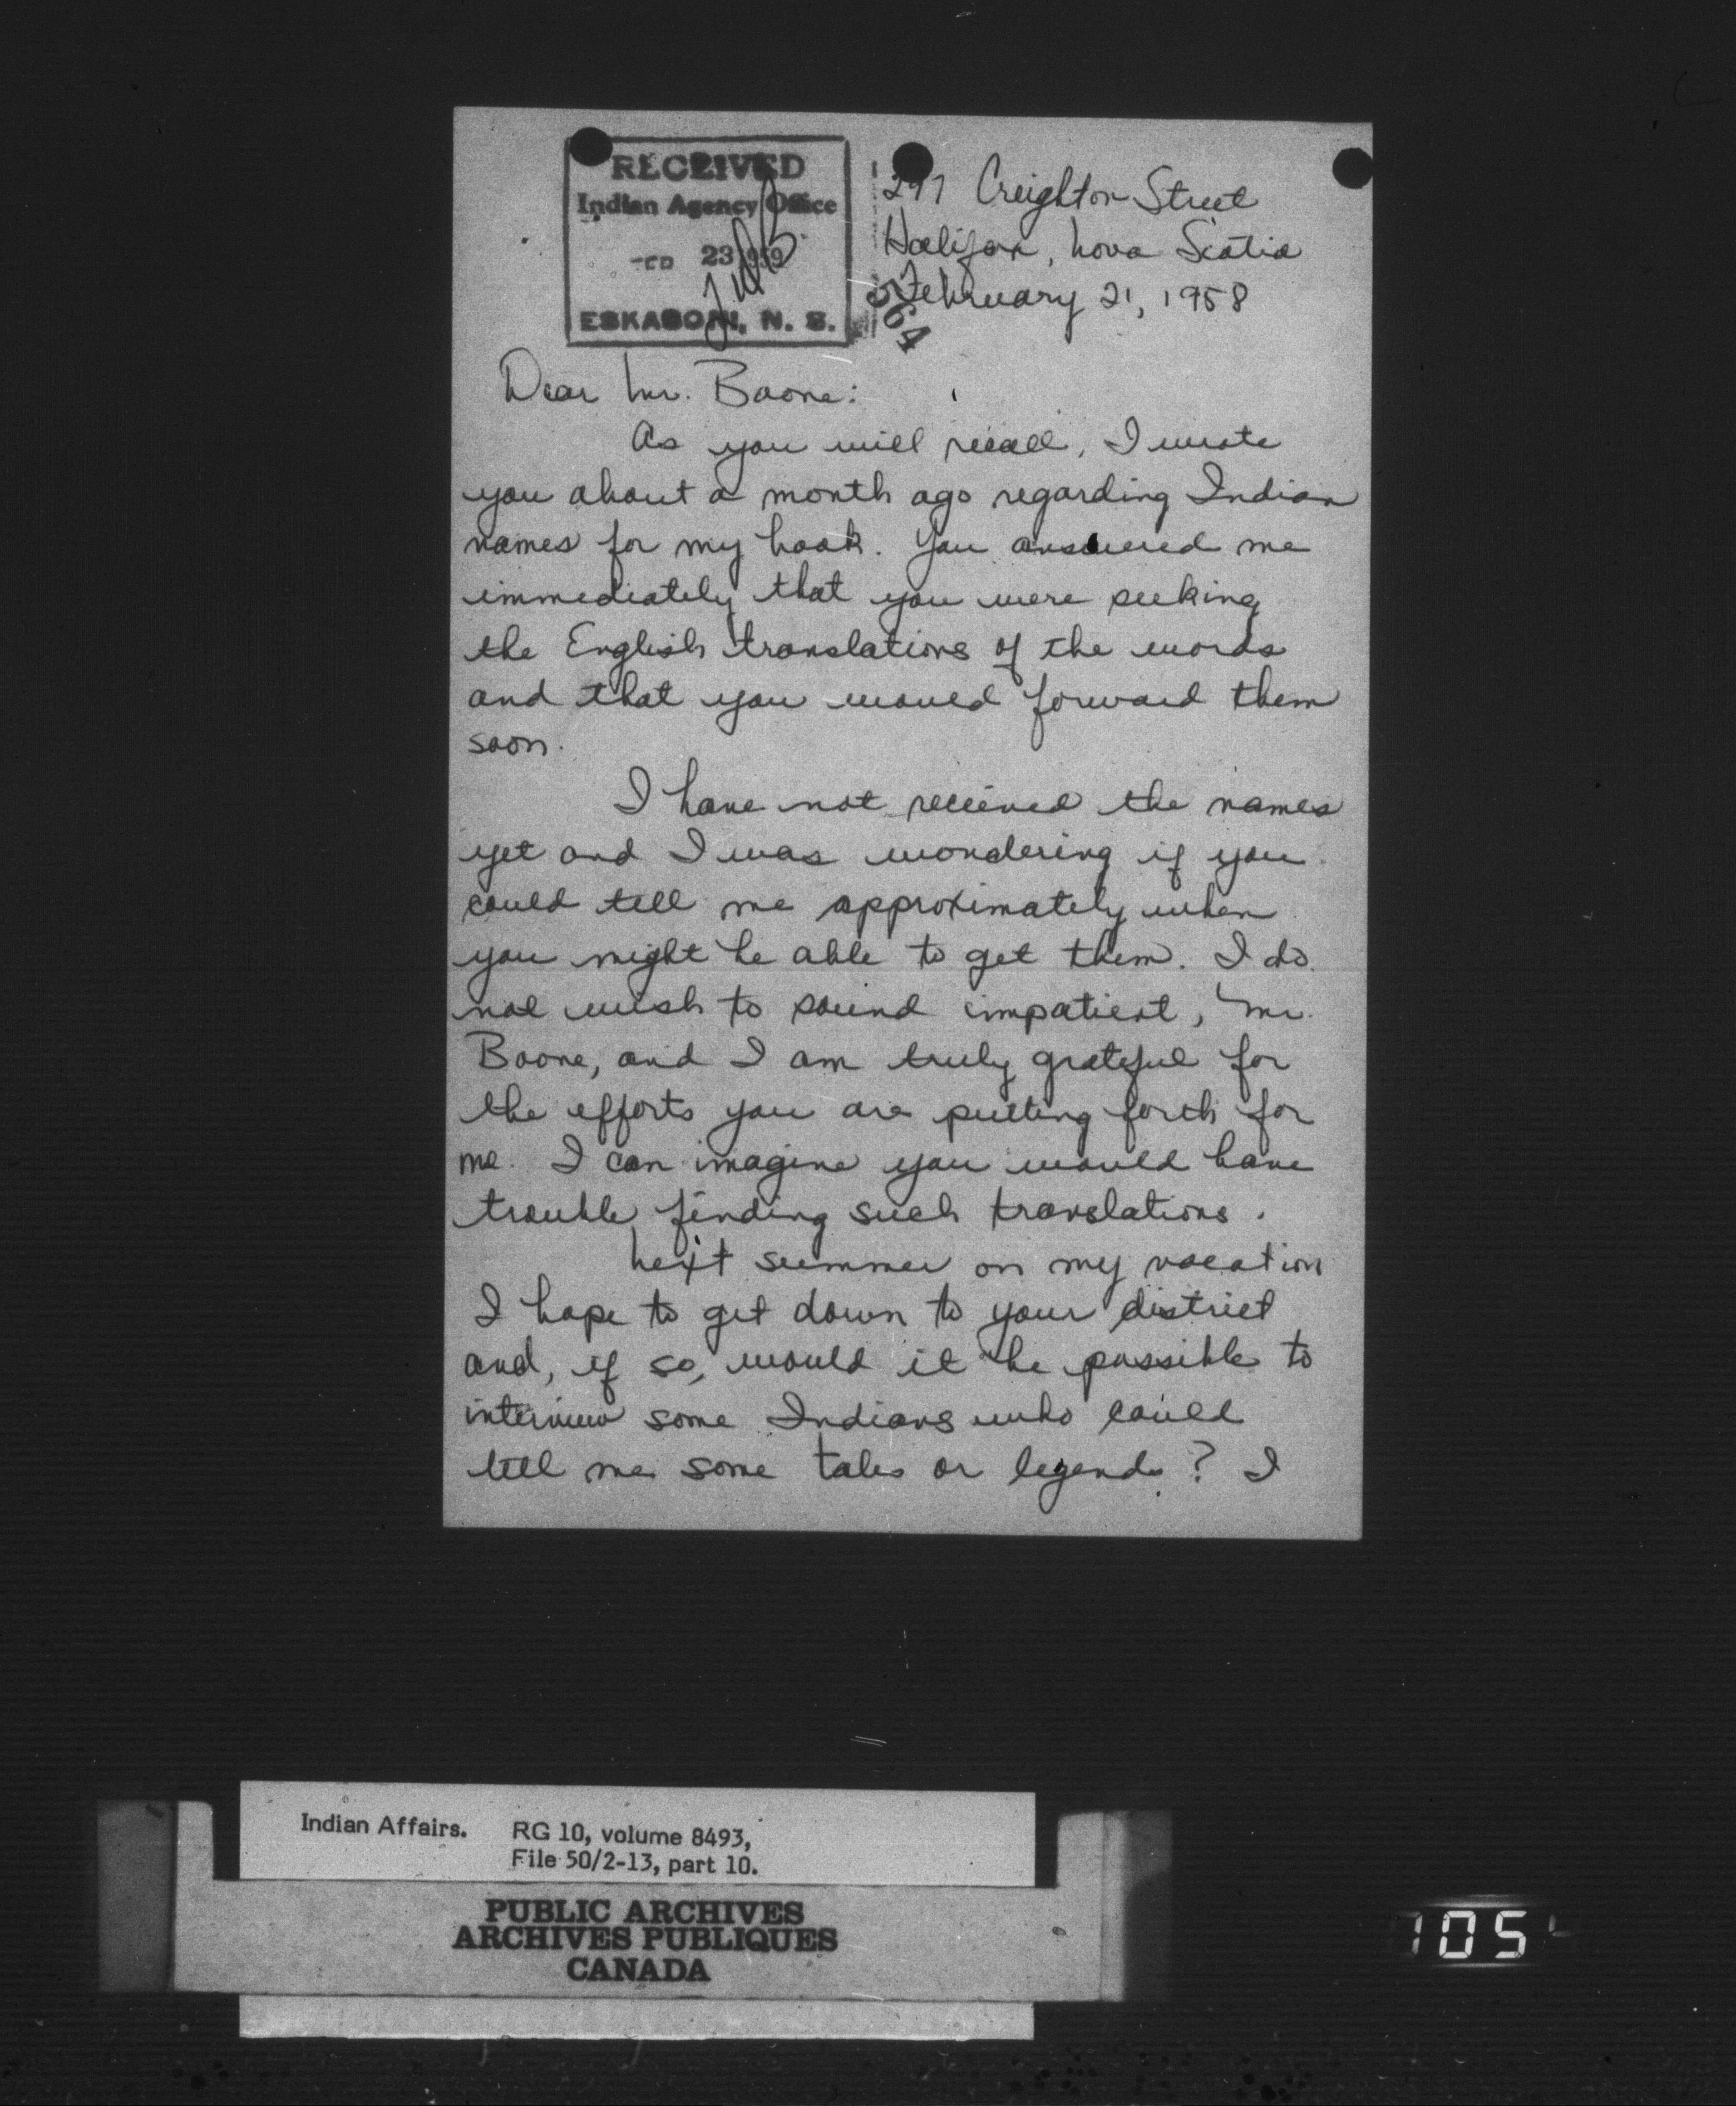 RECEIVED
Indian Agency Office
FEB 23 1959
ESKASONI, N. S.
564
297 Creighton Street
Halifax, Nova Scotia
February 21, 1958
Dear Mr. Boone:
As you will recall, I wrote
you about a month ago regarding Indian
names for my book. You answered me
immediately that you were seeking
the English translations of the words
and that you would forward them
soon.
I have not received the names
yet and I was wondering if you
could tell me approximately when
you might be able to get them. I do
not wish to sound impatient, Mr.
Boone, and I am truly grateful for
the efforts you are putting forth for
me. I can imagine you would have
trouble finding such translations.
Next summer on my vacation
I hope to get down to your district
and, if so, would it be possible to
interview some Indians who could
tell me some tales or legends? I
Indian Affairs. RG 10, volume 8493,
File 50/2-13, part 10.
PUBLIC ARCHIVES
ARCHIVES PUBLIQUES
CANADA
105